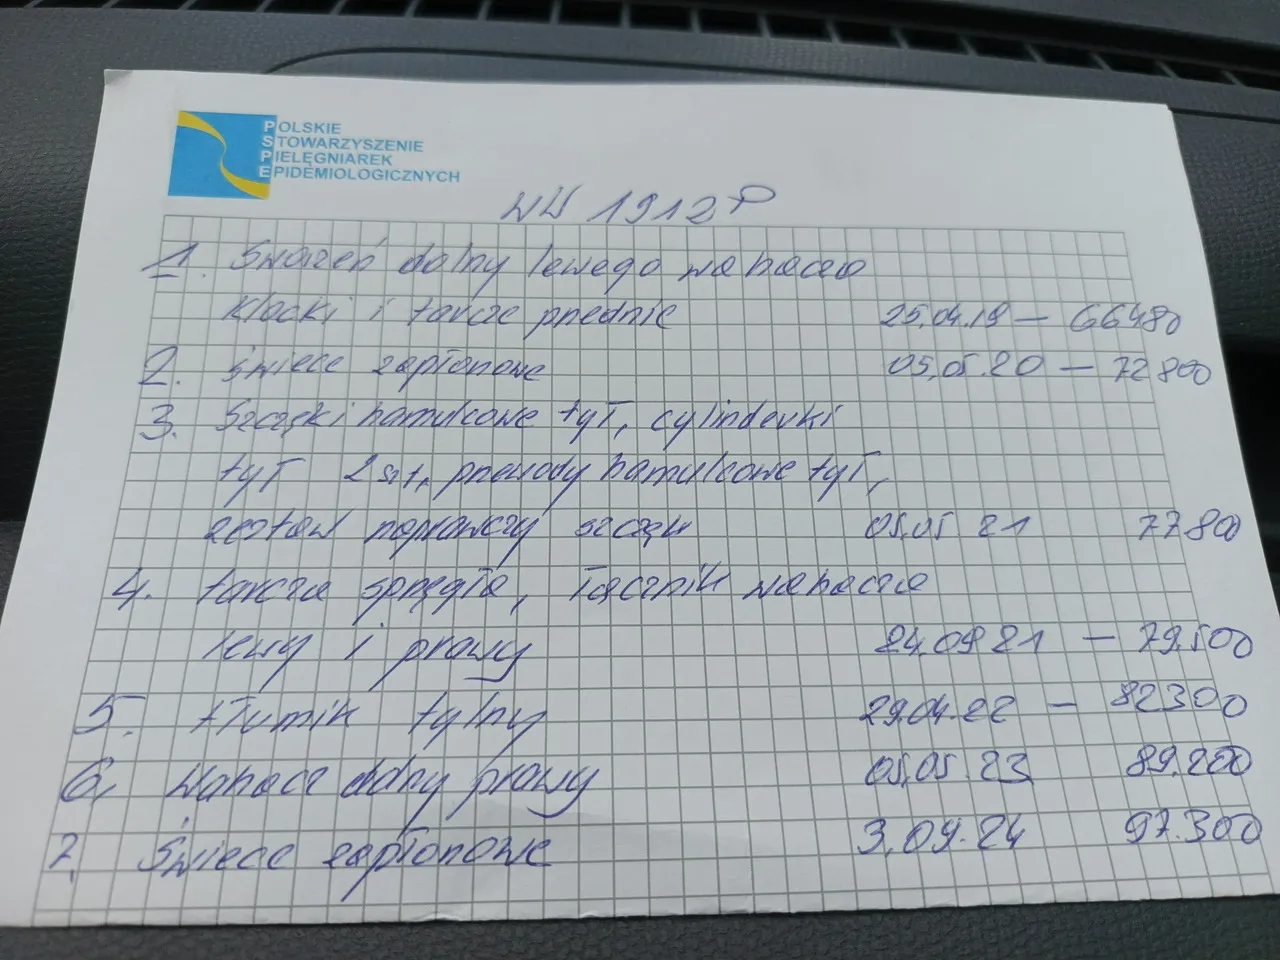 POLSKIE
STOWARZYSZENIE
PIELĘGNIAREK
EPIDEMIOLOGICZNYCH
WW 1912P
1. Sworzeń dolny lewego wahacza
Klocki i tarcze przednie 25.04.19 — 66480
2. świece zapłonowe 05.05.20 — 72800
3. Szczęki hamulcowe tył, cylinderki
tył 2szt, przewody hamulcowe tył,
zestaw naprawczy szczęk 05.05.21 77800
4. tarcza sprzęgła, łącznik wahacza
lewy i prawy 24.09.21 — 79.500
5. tłumik tylny 29.04.22 — 82300
6. Wahacz dolny prawy 05.05.23 89.200
7, Świece zapłonowe 3.09.24 97.300